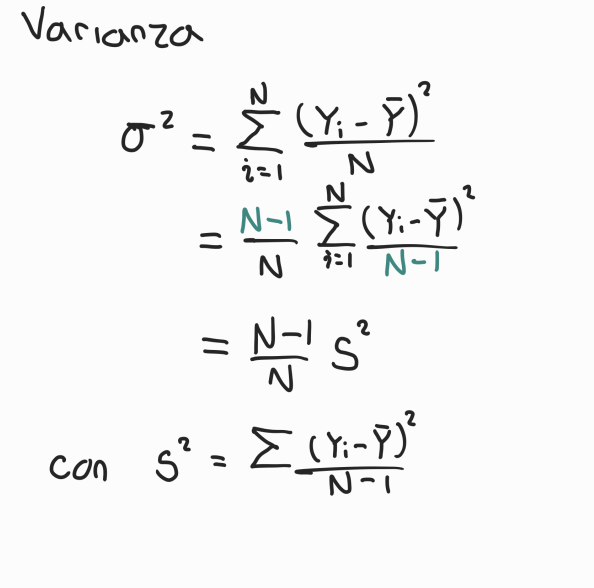 Varianza
σ² = \sum_{i=1}^{N} \frac{(Y_i - \bar{Y})^2}{N}
= \frac{N-1}{N} \sum_{i=1}^{N} \frac{(Y_i - \bar{Y})^2}{N-1}
= \frac{N-1}{N} S^2
con S² = \sum \frac{(Y_i - \bar{Y})^2}{N-1}